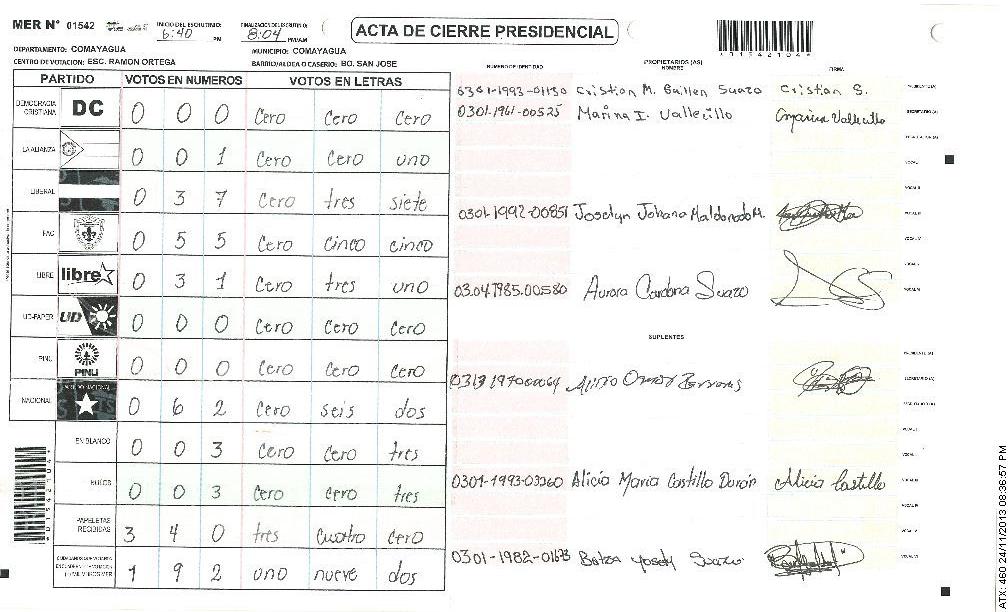 MER N° 01542 INICIO DEL ESCRUTINIO: 6:40 PM FINALIZACION ESCRUTINIO: 8:04 PM/AM
ACTA DE CIERRE PRESIDENCIAL
01542104
DEPARTAMENTO: COMAYAGUA MUNICIPIO: COMAYAGUA
CENTRO DE VOTACION: ESC. RAMON ORTEGA BARRIO/ALDEA O CASERIO: BO. SAN JOSE
NUMERO DE IDENTIDAD PROPIETARIOS (AS) NOMBRE FIRMA
PARTIDO VOTOS EN NUMEROS VOTOS EN LETRAS
DEMOCRACIA CRISTIANA DC 0 0 0 Cero Cero Cero
LA ALIANZA 0 0 1 Cero Cero uno
LIBERAL 0 3 7 Cero tres siete
PAC 0 5 5 Cero cinco cinco
LIBRE libre 0 3 1 Cero tres uno
UD-FAPER UD 0 0 0 Cero Cero Cero
PINU PINU 0 0 0 Cero Cero Cero
NACIONAL PARTIDO NACIONAL 0 6 2 Cero seis dos
EN BLANCO 0 0 3 Cero Cero tres
NULOS 0 0 3 Cero cero tres
PAPELETAS RECIBIDAS 3 4 0 tres cuatro cero
1 9 2 uno nueve dos
0301-1993-01130 Cristian M. Guillen Suazo Cristian S. PRESIDENTE (A)
0301-1961-00525 Marina I. Vallecillo Marina Vallecillo SECRETARIO (A)
0301-1992-00851 Joselyn Johana Maldonado M.
03.04.1985.00580 Aurora Cardona Suazo
SUPLENTES
PRESIDENTE (A)
SECRETARIO (A)
0301-1993-03260 Alicia Maria Castillo Durón Alicia Castillo
0301-1982-01673 Suazo
ATX: 460 24/11/2013 08:36:57 PM